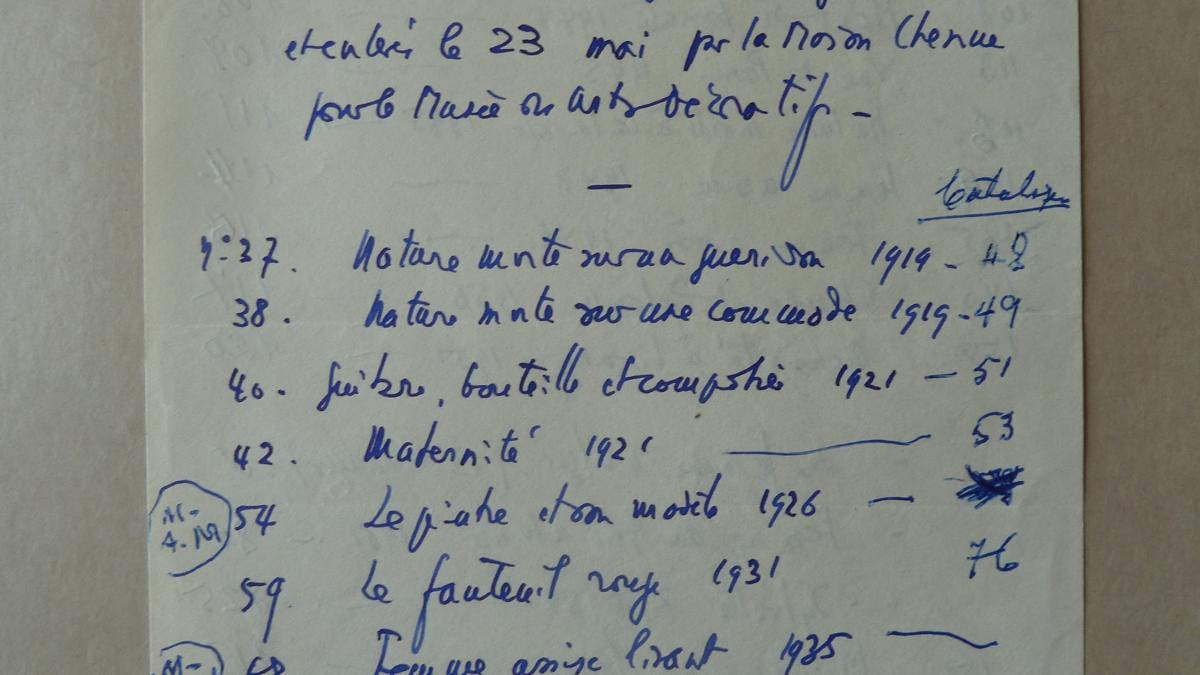 et enlevés le 23 mai par la Maison Chenue
pour le Musée des Arts Décoratifs -
Catalogue
n° 37. Nature morte sur un guéridon 1919 - 48
38. Nature morte sur une commode 1919 - 49
40. Guitare, bouteille et compotier 1921 - 51
42. Maternité 1921 53
M.A.M 54 Le peintre et son modèle 1926 -
59 Le fauteuil rouge 1931 76
M- Femme assise lisant 1935